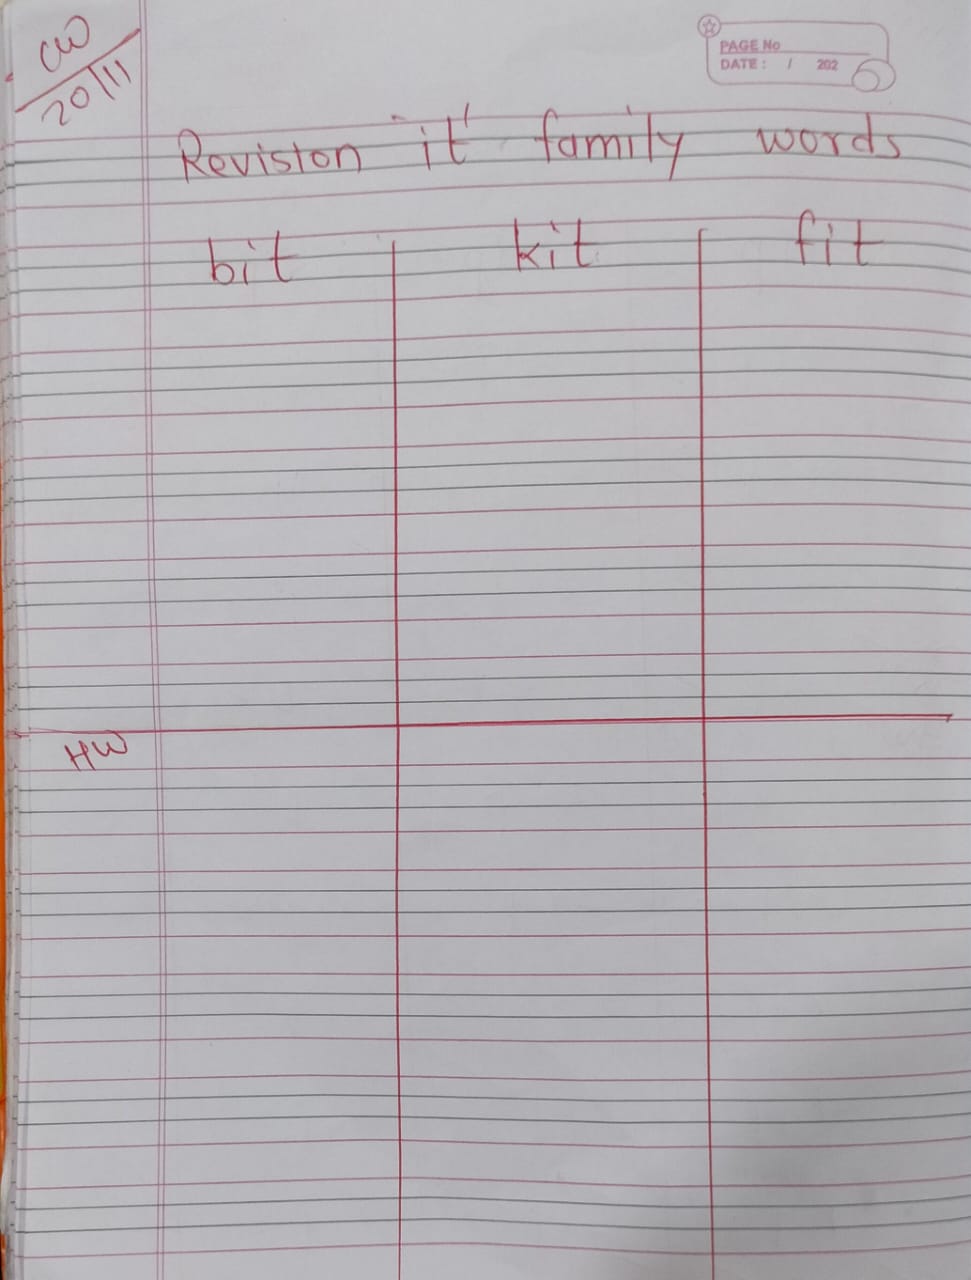 CW
20/11
PAGE No
DATE : / 202
Revision 'it' family words
bit kit fit
HW